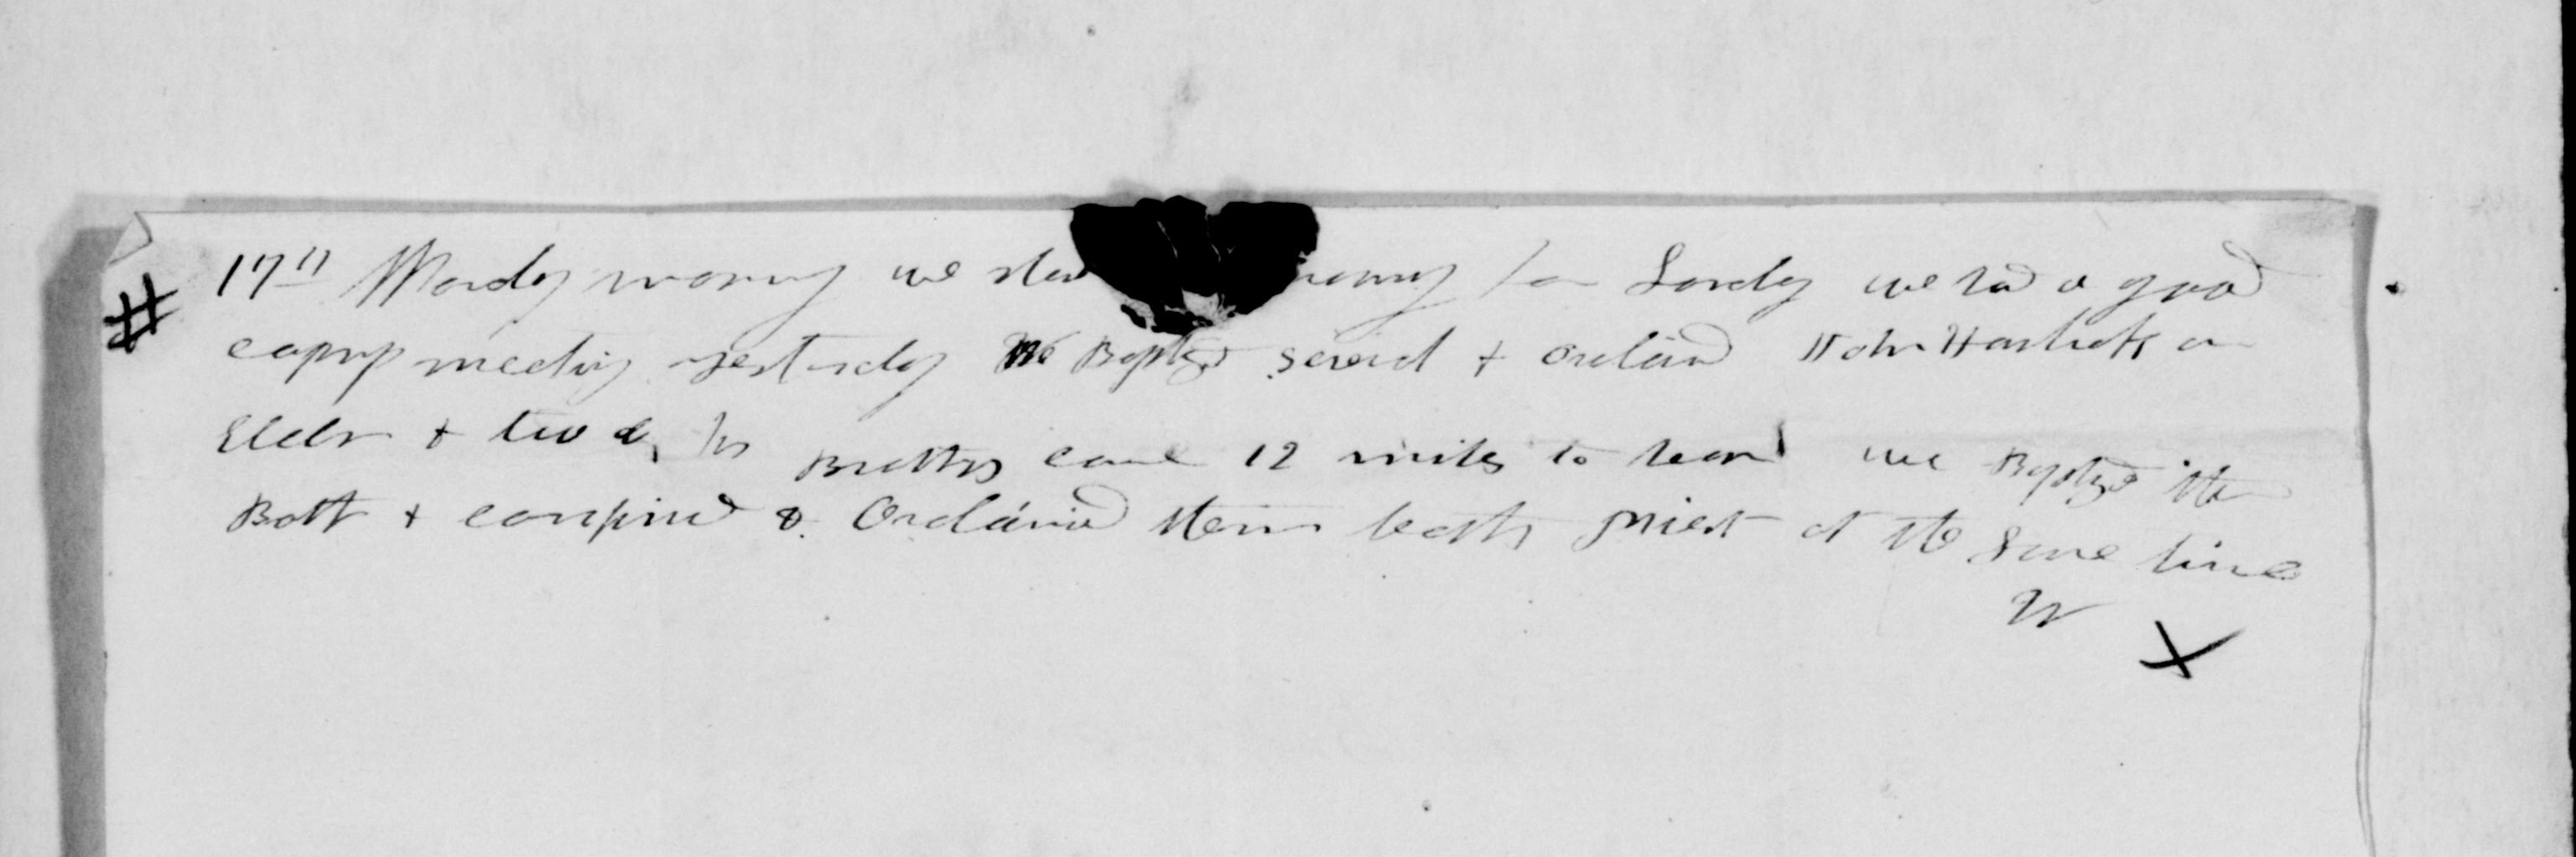 # 17th Monday morning we star for London we had a good
camp meeting yesterday we Baptized several & ordained John Hasluck an
Elder & two of his Brothers came 12 miles to hear we Baptized them
Both & confirmed & Ordained them both priest at the same time
W
X